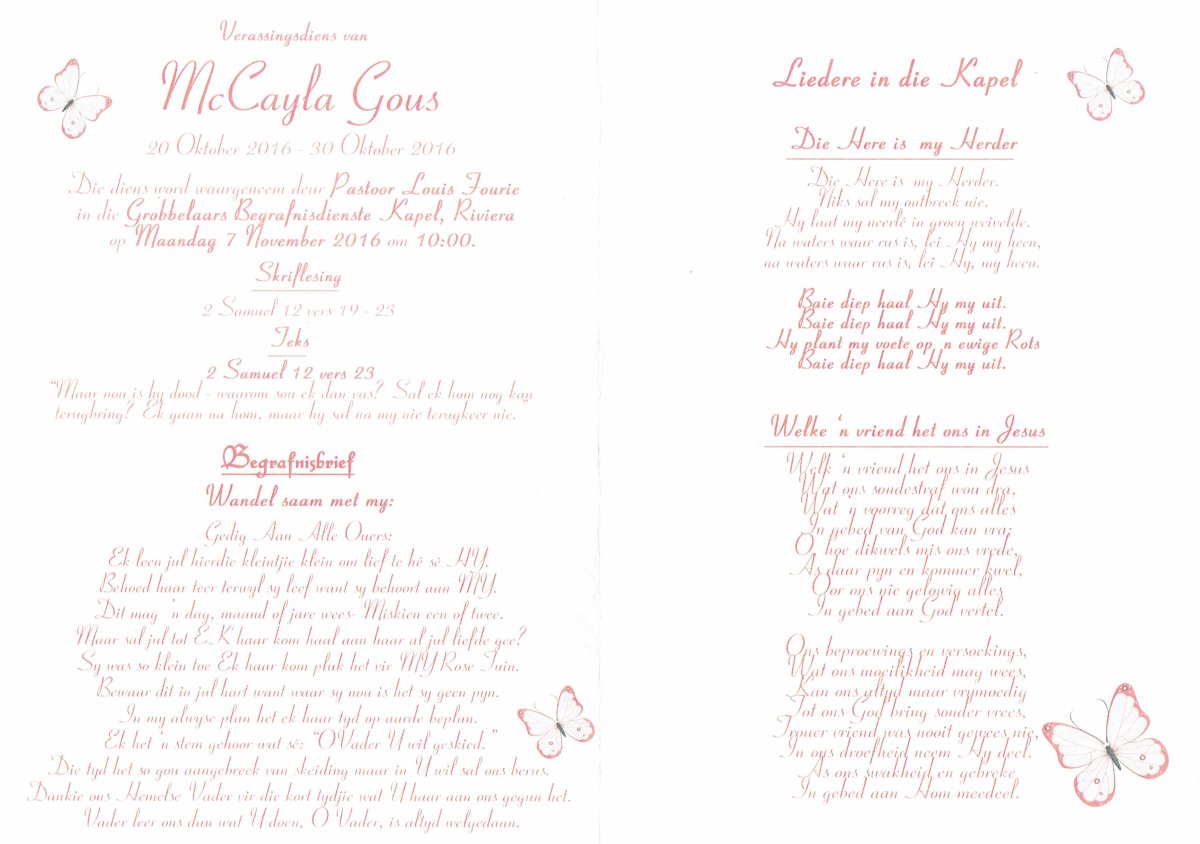 Verassingsdiens van
McCayla Gous
20 Oktober 2016 - 30 Oktober 2016
Die diens word waargeneem deur Pastoor Louis Fourie
in die Grobbelaars Begrafnisdienste Kapel, Riviera
op Maandag 7 November 2016 om 10:00.
Skriflesing
2 Samuel 12 vers 19 - 23
Teks
2 Samuel 12 vers 23
"Maar nou is hy dood - waarom sou ek dan vas? Sal ek hom nog kan
terugbring? Ek gaan na hom, maar hy sal na my nie terugkeer nie."
Begrafnisbrief
Wandel saam met my:
Gedig Aan Alle Ouers:
Ek leen jul hierdie kleintjie klein om lief te hê sê HY.
Behoed haar teer terwyl sy leef want sy behoort aan MY.
Dit mag 'n dag, maand of jare wees- Miskien een of twee.
Maar sal jul tot EK haar kom haal aan haar al jul liefde gee?
Sy was so klein toe Ek haar kom pluk het vir MY Rose Tuin.
Bewaar dit in jul hart want waar sy nou is het sy geen pyn.
In my alwyse plan het ek haar tyd op aarde beplan.
Ek het 'n stem gehoor wat sê: "O Vader U wil geskied."
Die tyd het so gou aangebreek van skeiding maar in U wil sal ons berus.
Dankie ons Hemelse Vader vir die kort tydjie wat U haar aan ons gegun het.
Vader leer ons dan wat U doen, O Vader, is altyd welgedaan.
Liedere in die Kapel
Die Here is my Herder
Die Here is my Herder.
Niks sal my ontbreek nie.
Hy laat my neerlê in groen weivelde.
Na waters waar rus is, lei Hy my heen,
na waters waar rus is, lei Hy, my heen.
Baie diep haal Hy my uit.
Baie diep haal Hy my uit.
Hy plant my voete op 'n ewige Rots
Baie diep haal Hy my uit.
Welke 'n vriend het ons in Jesus
Welk 'n vriend het ons in Jesus
Wat ons sondestraf wou dra,
Wat 'n voorreg dat ons alles
In gebed van God kan vra;
O, hoe dikwels mis ons vrede,
As daar pyn en kommer kwel,
Oor ons nie gelowig alles
In gebed aan God vertel.
Ons beproewings en versoekings,
Wat ons moeilikheid mag wees,
Kan ons altyd maar vrymoedig
Tot ons God bring sonder vrees,
Trouer vriend was nooit gewees nie,
In ons droefheid neem Hy deel.
As ons swakheid en gebreke
In gebed aan Hom meedeel.